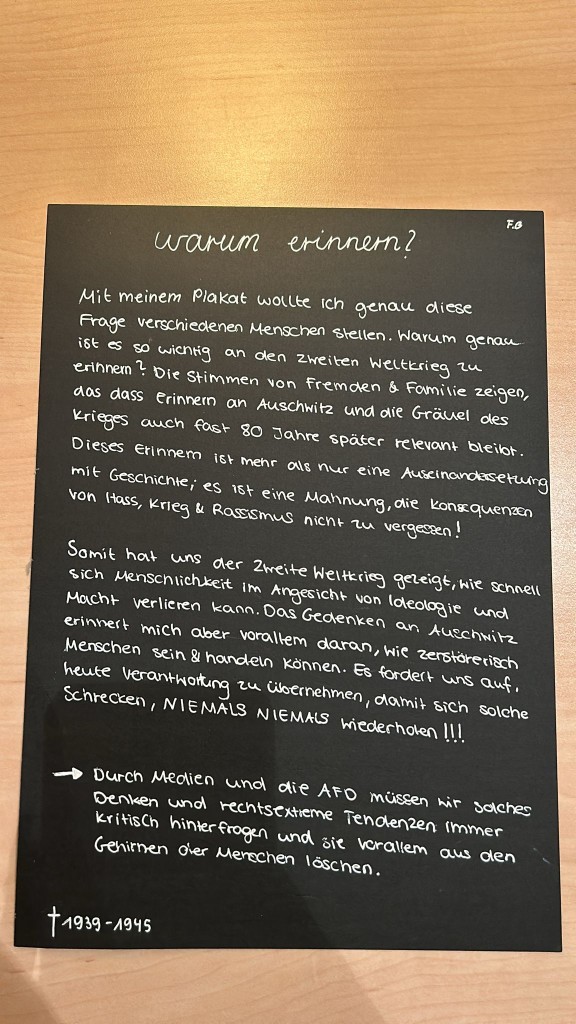 F.B
warum erinnern?
Mit meinem Plakat wollte ich genau diese
Frage verschiedenen Menschen stellen. Warum genau
ist es so wichtig an den zweiten Weltkrieg zu
erinnern? Die Stimmen von Fremden & Familie zeigen,
das dass Erinnern an Auschwitz und die Gräuel des
Krieges auch fast 80 Jahre später relevant bleibt.
Dieses Erinnern ist mehr als nur eine Auseinandersetzung
mit Geschichte; es ist eine Mahnung, die Konsequenzen
von Hass, Krieg & Rassismus nicht zu vergessen!
Somit hat uns der Zweite Weltkrieg gezeigt, wie schnell
sich Menschlichkeit im Angesicht von Ideologie und
Macht verlieren kann. Das Gedenken an Auschwitz
erinnert mich aber vorallem daran, wie zerstörerisch
Menschen sein & handeln können. Es fordert uns auf,
heute Verantwortung zu übernehmen, damit sich solche
Schrecken, NIEMALS NIEMALS wiederholen !!!
→ Durch Medien und die AFD müssen wir solches
Denken und rechtsextreme Tendenzen immer
kritisch hinterfragen und sie vorallem aus den
Gehirnen der Menschen löschen.
†1939-1945